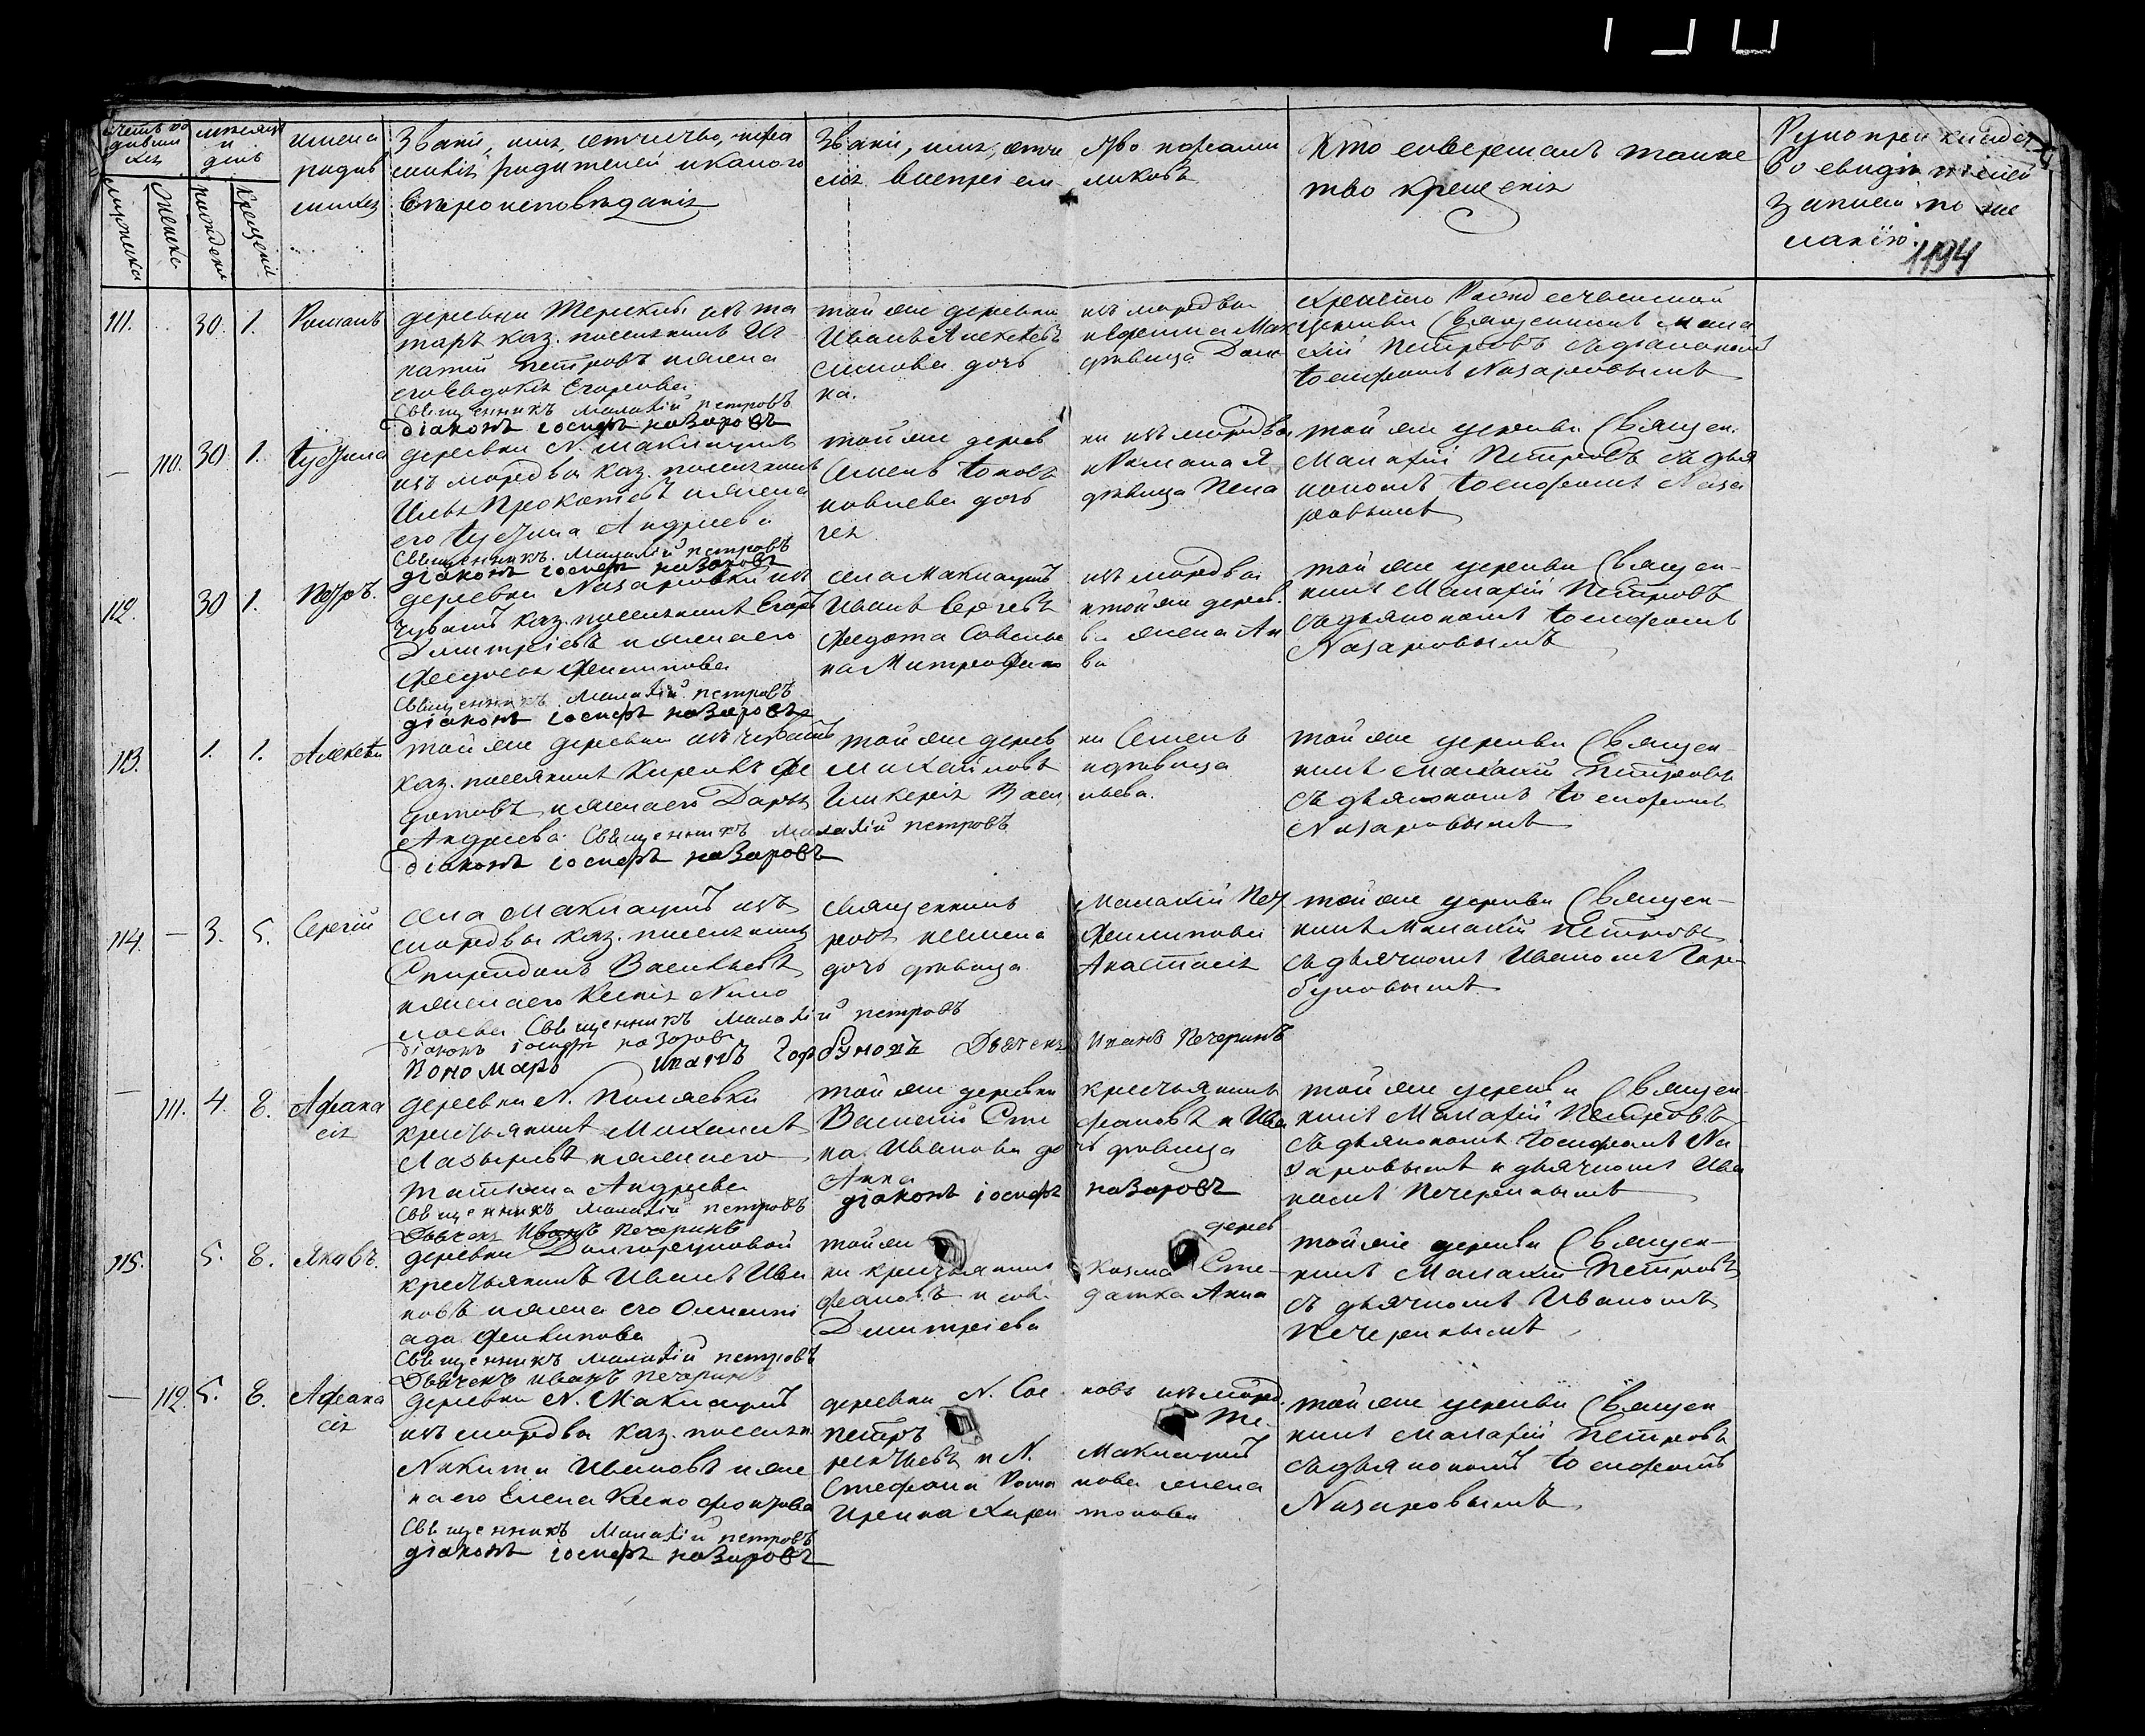 Счетъ ро
дивши
хся
мужеска
женска
месяцъ
и
день
рожденія
крещенія
имена
родив
шихся
Званіе, имя, отчество, и фа
милія родителей и какого
вероисповеданія
Званіе, имя, отче
ство и фами
лія воспріем
никовъ
Кто совершалъ таинс
тво крещенія
записи по же
ланію
1194
111. 30. 1. Романъ
деревни изъ та
таръ каз. поселянинъ
Петровъ и жена
его Евдокія Егорова
Священникъ Малахій Петровъ
діаконъ іосифъ назаровъ
той же деревни
Иванъ Алексеевъ
симова дочь
на.
изъ мордвы
девица Дом
Христо Рождественской
церкви Священникъ Мала
хій Петровъ съ діакономъ
Іосифомъ Назаровымъ
— 110. 30. 1.
деревни Н. Маклаушъ
изъ мордвы каз. поселянинъ
Илья Прокофьевъ и жена
его Андреева
Священникъ Малахій Петровъ
діаконъ іосифъ назаровъ
той же дерев
Семенъ
ковлева дочь
гея
ни изъ мордвы
и Романа Я
девица Пела
той же церкви Священ.
Малахій Петровъ съ дья
кономъ Іосифомъ Наза
ровымъ
112. 30 1. Петръ.
деревни Назаровки изъ
чувашъ каз. поселянинъ Егоръ
Дмитріевъ и жена его
Федосья Филипова
Священникъ Малахій петровъ
діаконъ іосифъ назаровъ
села Маклаушъ
Иванъ Сергеевъ
Федота Савелье
на Митрофано
изъ мордвы
и той же дерев.
ва жена Ан
ва
той же церкви Священ-
никъ Малахій Петровъ
съ дьякономъ Іосифомъ
Назаровымъ
113. 1. 1. Алексей
той же деревни изъ чувашъ
каз. поселянинъ Фе
дотовъ и жена его Дарья
Андреева Священникъ малахій петровъ
діаконъ іосифъ назаровъ
той же дерев
Михайловъ
Гликерія Васи
ни Семенъ
и девица
льева.
той же церкви Священ-
никъ Малахій Петровъ
съ дьякономъ Іосифомъ
Назаровымъ
114. — 3. 5. Сергій
села Маклаушъ изъ
мордвы каз. поселянинъ
Спиридонъ Васильевъ
и жена его Ксенія Нико
лаева Священникъ Малахій петровъ
діаконъ іосифъ назаровъ
Пономарь иванъ Горбуновъ Дьячекъ Иванъ Печеринъ
Священникъ
ровъ
дочь девица
Малахій Пет
Филипова
Анастасія
той же церкви Священ-
никъ Малахій Петровъ
съ дьячкомъ Иваномъ Гор-
буновымъ
— 111. 4. 8. Афана
сія
деревни Н. Поляевки
крестьянинъ Михаилъ
Лазыревъ и жена его
Татьяна Андреева
Священникъ Малахій петровъ
Дьячекъ Иванъ Печеринъ
той же деревни
Василій Сте
на Иванова до
Анна
діаконъ іосифъ
крестьянинъ
фановъ и Ива
чь девица
назаровъ
той же церкви Священ
никъ Малахій Петровъ
съ дьякономъ Іосифомъ На
заровымъ и дьячкомъ Ива
номъ Печеринымъ
115. 5. 8. Яковъ.
деревни Долгоруковой
крестьянинъ Иванъ Ива
новъ и жена его Олимпі
ада Филипова
Священникъ Малахій петровъ
Дьячекъ иванъ печеринъ
той же
ни крестьянинъ
фановъ и сол
Дмитріева
дерев
Козма Сте-
датка Анна
той же церкви Священ-
никъ Малахій Петровъ
съ дьячкомъ Иваномъ
Печеринымъ
— 112. 5. 8. Афана
сія
деревни Н. Маклаушъ
изъ мордвы каз. поселян
Никита Ивановъ и же
на его Елена Ксенофонтова
Священникъ Малахій петровъ
діаконъ іосифъ назаровъ
деревни Н. Сос
Петръ
и Н.
Стефана Рома
Ирина Хари
новъ изъ морд.
Те-
Маклаушъ
нова жена
тонова
той же церкви Священ
никъ Малахій Петровъ
съ дьякономъ Іосифомъ
Назаровымъ